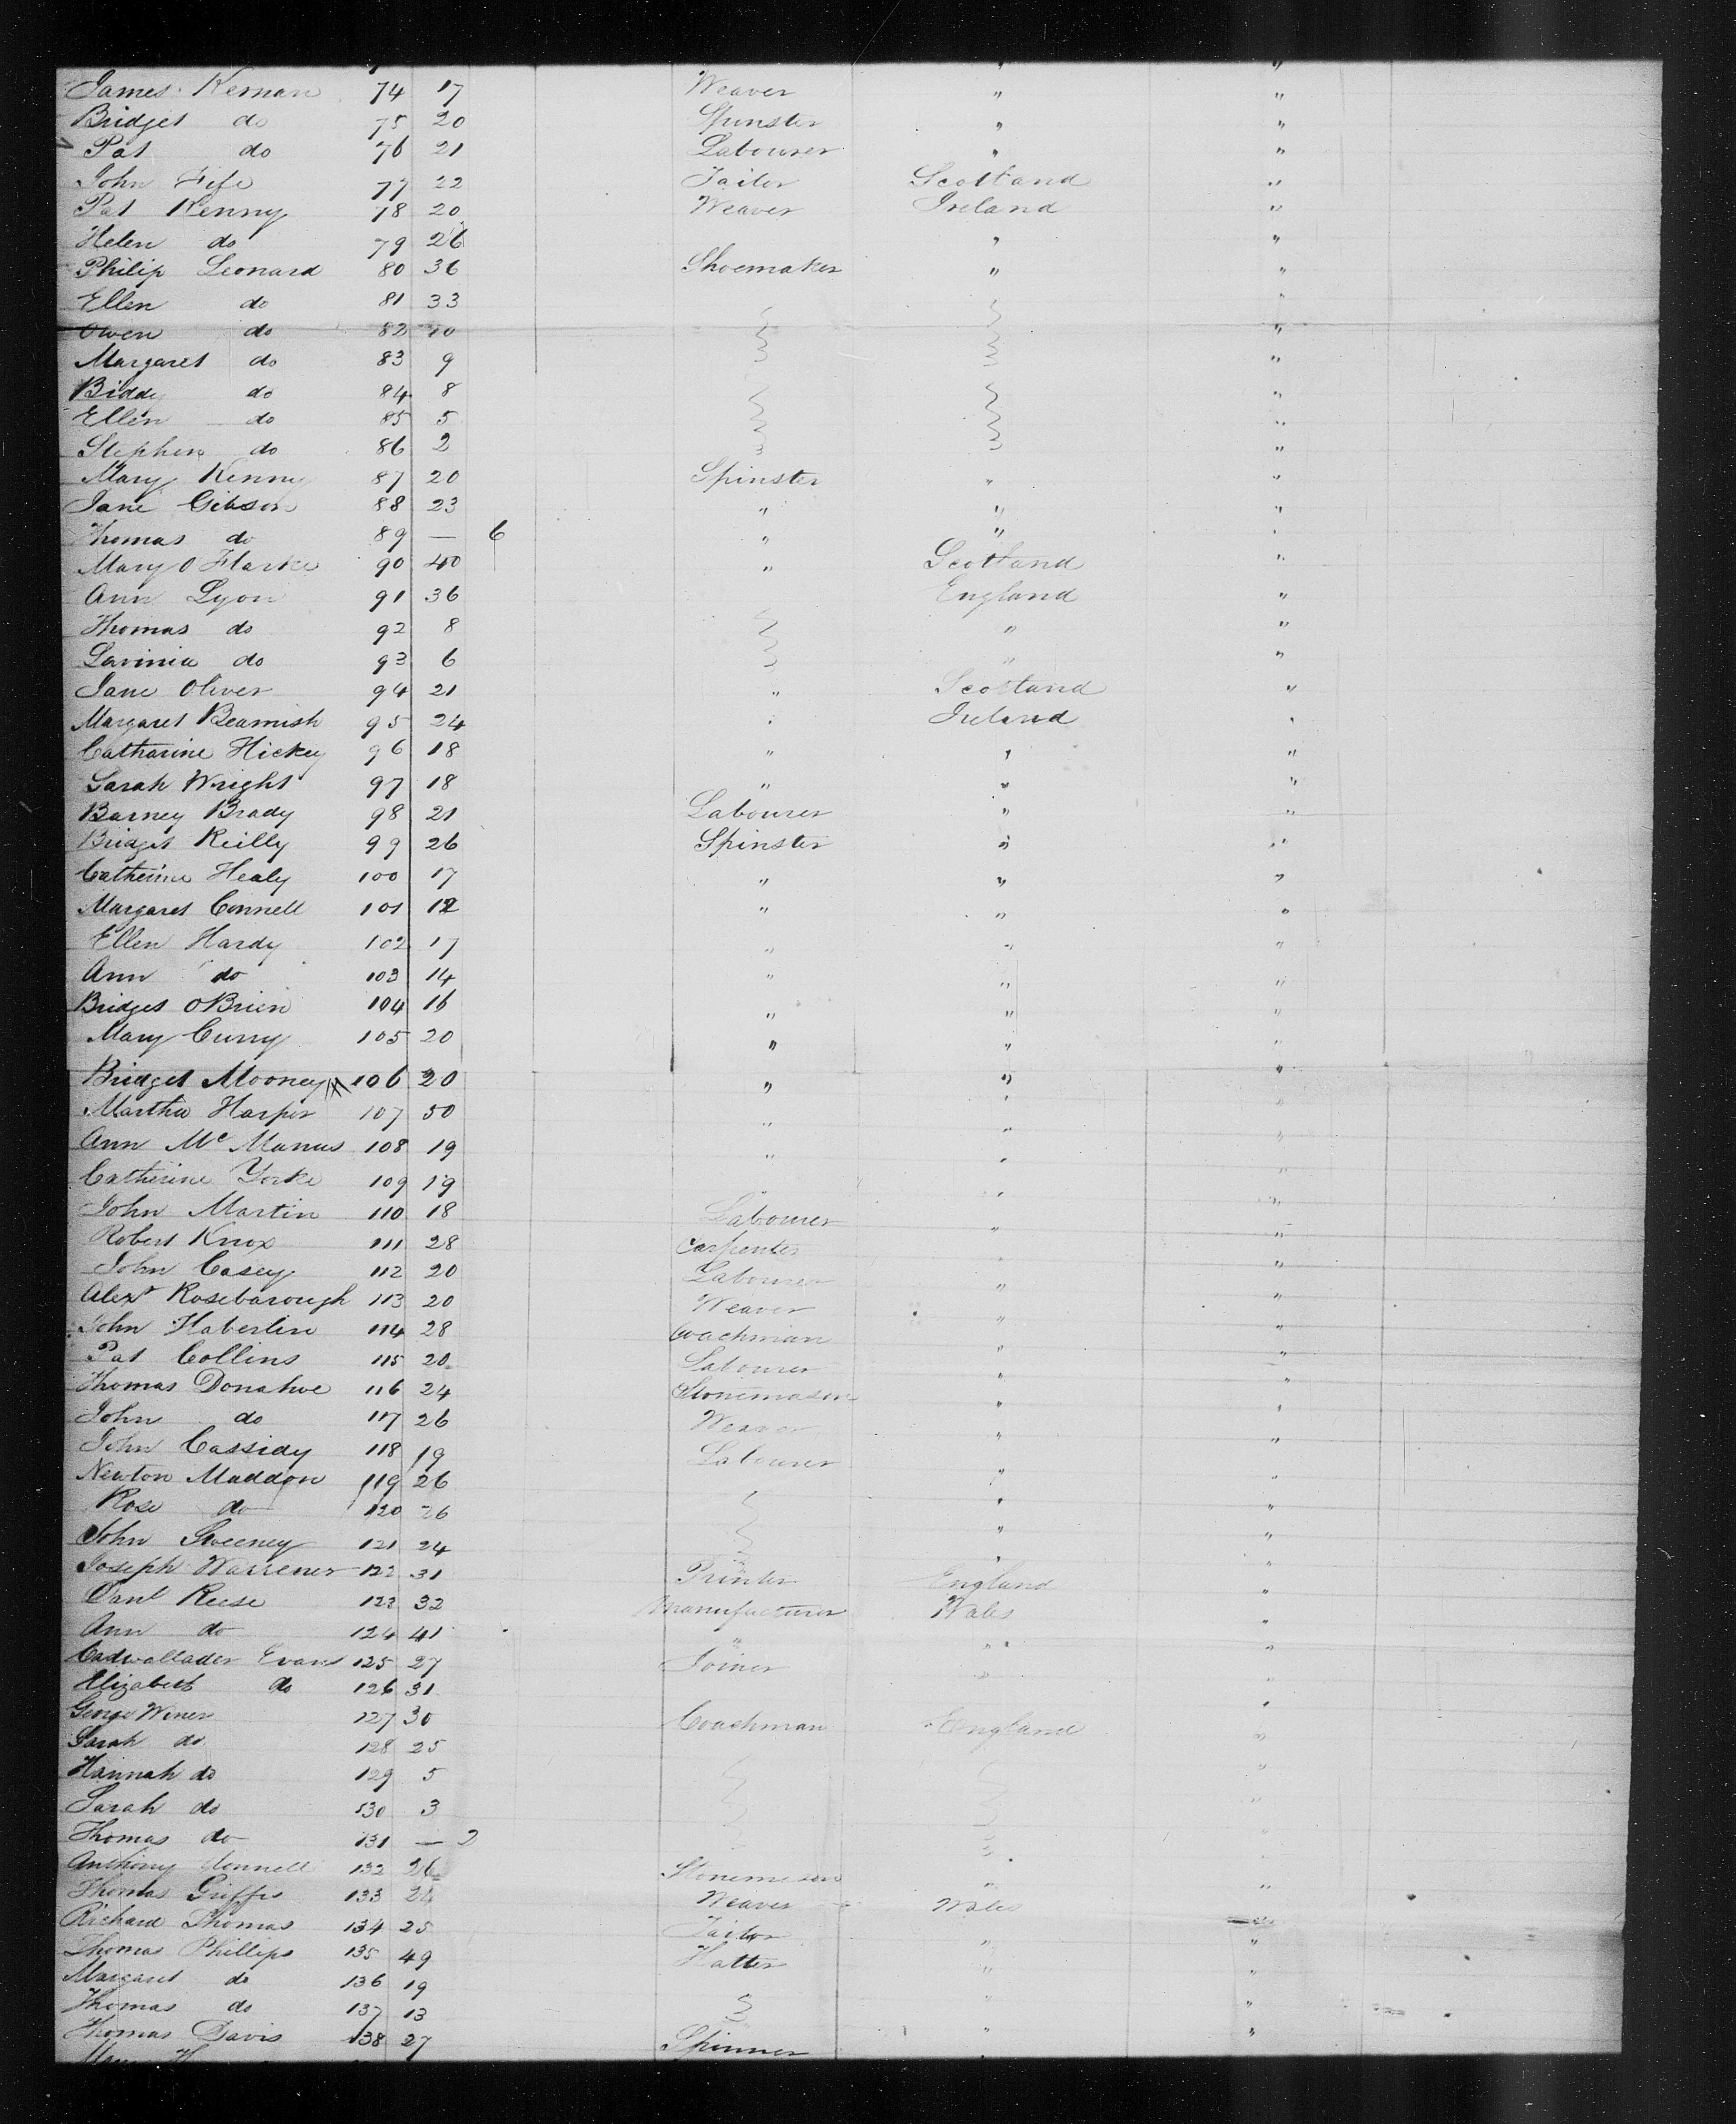 James Kernan 74 17 Weaver " "
Bridget do 75 20 Spinster " "
Pat do 76 21 Labourer " "
John Fife 77 22 Tailor Scotland "
Pat Kenny 78 20 Weaver Ireland "
Helen do 79 26 " "
Philip Leonard 80 36 Shoemaker " "
Ellen do 81 33 "
Owen do 82 10 "
Margaret do 83 9 "
Biddy do 84 8 "
Ellen do 85 5 "
Stephen do 86 2 "
Mary Kenny 87 20 Spinster " "
Jane Gibson 88 23 " " "
Thomas do 89 — 6 " " "
Mary O 90 40 " Scotland "
Ann Lyon 91 36 England "
Thomas do 92 8 " "
Lavinia do 93 6 " "
Jane Oliver 94 21 " Scotland "
Margaret Beamish 95 24 " Ireland "
Catharine Hickey 96 18 " " "
Sarah Wright 97 18 " " "
Barney Brady 98 21 Labourer " "
Bridget Reilly 99 26 Spinster " "
Catherine Healy 100 17 " " "
Margaret Connell 101 12 " " "
Ellen Hardy 102 17 " " "
Ann do 103 14 " " "
Bridget OBrien 104 16 " " "
Mary Curry 105 20 " " "
Bridget Mooney 106 20 " " "
Martha Harper 107 50 " " "
Ann Mc Manus 108 19 " " "
Catherine Yorke 109 19 " " "
John Martin 110 18 Labourer " "
Robert Knox 111 28 Carpenter " "
John Casey 112 20 Labourer " "
Alexr Rosebarough 113 20 Weaver " "
John Haberlin 114 28 Coachman " "
Pat Collins 115 20 Labourer " "
Thomas Donahoe 116 24 Stonemason " "
John do 117 26 Weaver " "
John Cassidy 118 19 Labourer " "
Newton Maddon 119 26 " "
Rose do 120 26 " "
John Sweeney 121 24 " "
Joseph Warrener 122 31 Printer England "
Danl Reese 123 32 Manufacturer Wales "
Ann do 124 41 " " "
Cadwallader Evans 125 27 Joiner " "
Elizabeth do 126 31 "
George Winer 127 30 Coachman England "
Sarah do 128 25 "
Hannah do 129 5 "
Sarah do 130 3 "
Thomas do 131 — 2 "
Anthony 132 26 Stonemason " "
Thomas Griffis 133 Weaver Wales "
Richard Thomas 134 25 Tailor " "
Thomas Phillips 135 49 Hatter " "
Margaret do 136 19 " "
Thomas do 137 13 " "
Thomas Davis 138 27 Spinner " "